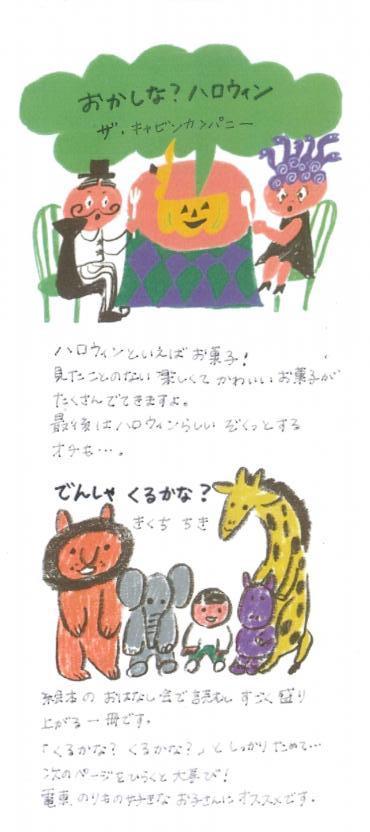 おかしな?ハロウィン
ザ・キャビンカンパニー
ハロウィンといえば お菓子!
見たことのない 楽しくて かわいい お菓子が
たくさんでてきますよ。
最後はハロウィンらしい ぞくっとする
オチも…。
でんしゃ くるかな?
きくち ちき
絵本の おはなし会で読むと すごく 盛り
上がる 一冊です。
「くるかな? くるかな?」と しっかり ためて…
次のページをひらくと 大喜び!
電車、のりもの好きな お子さんに オススメです。